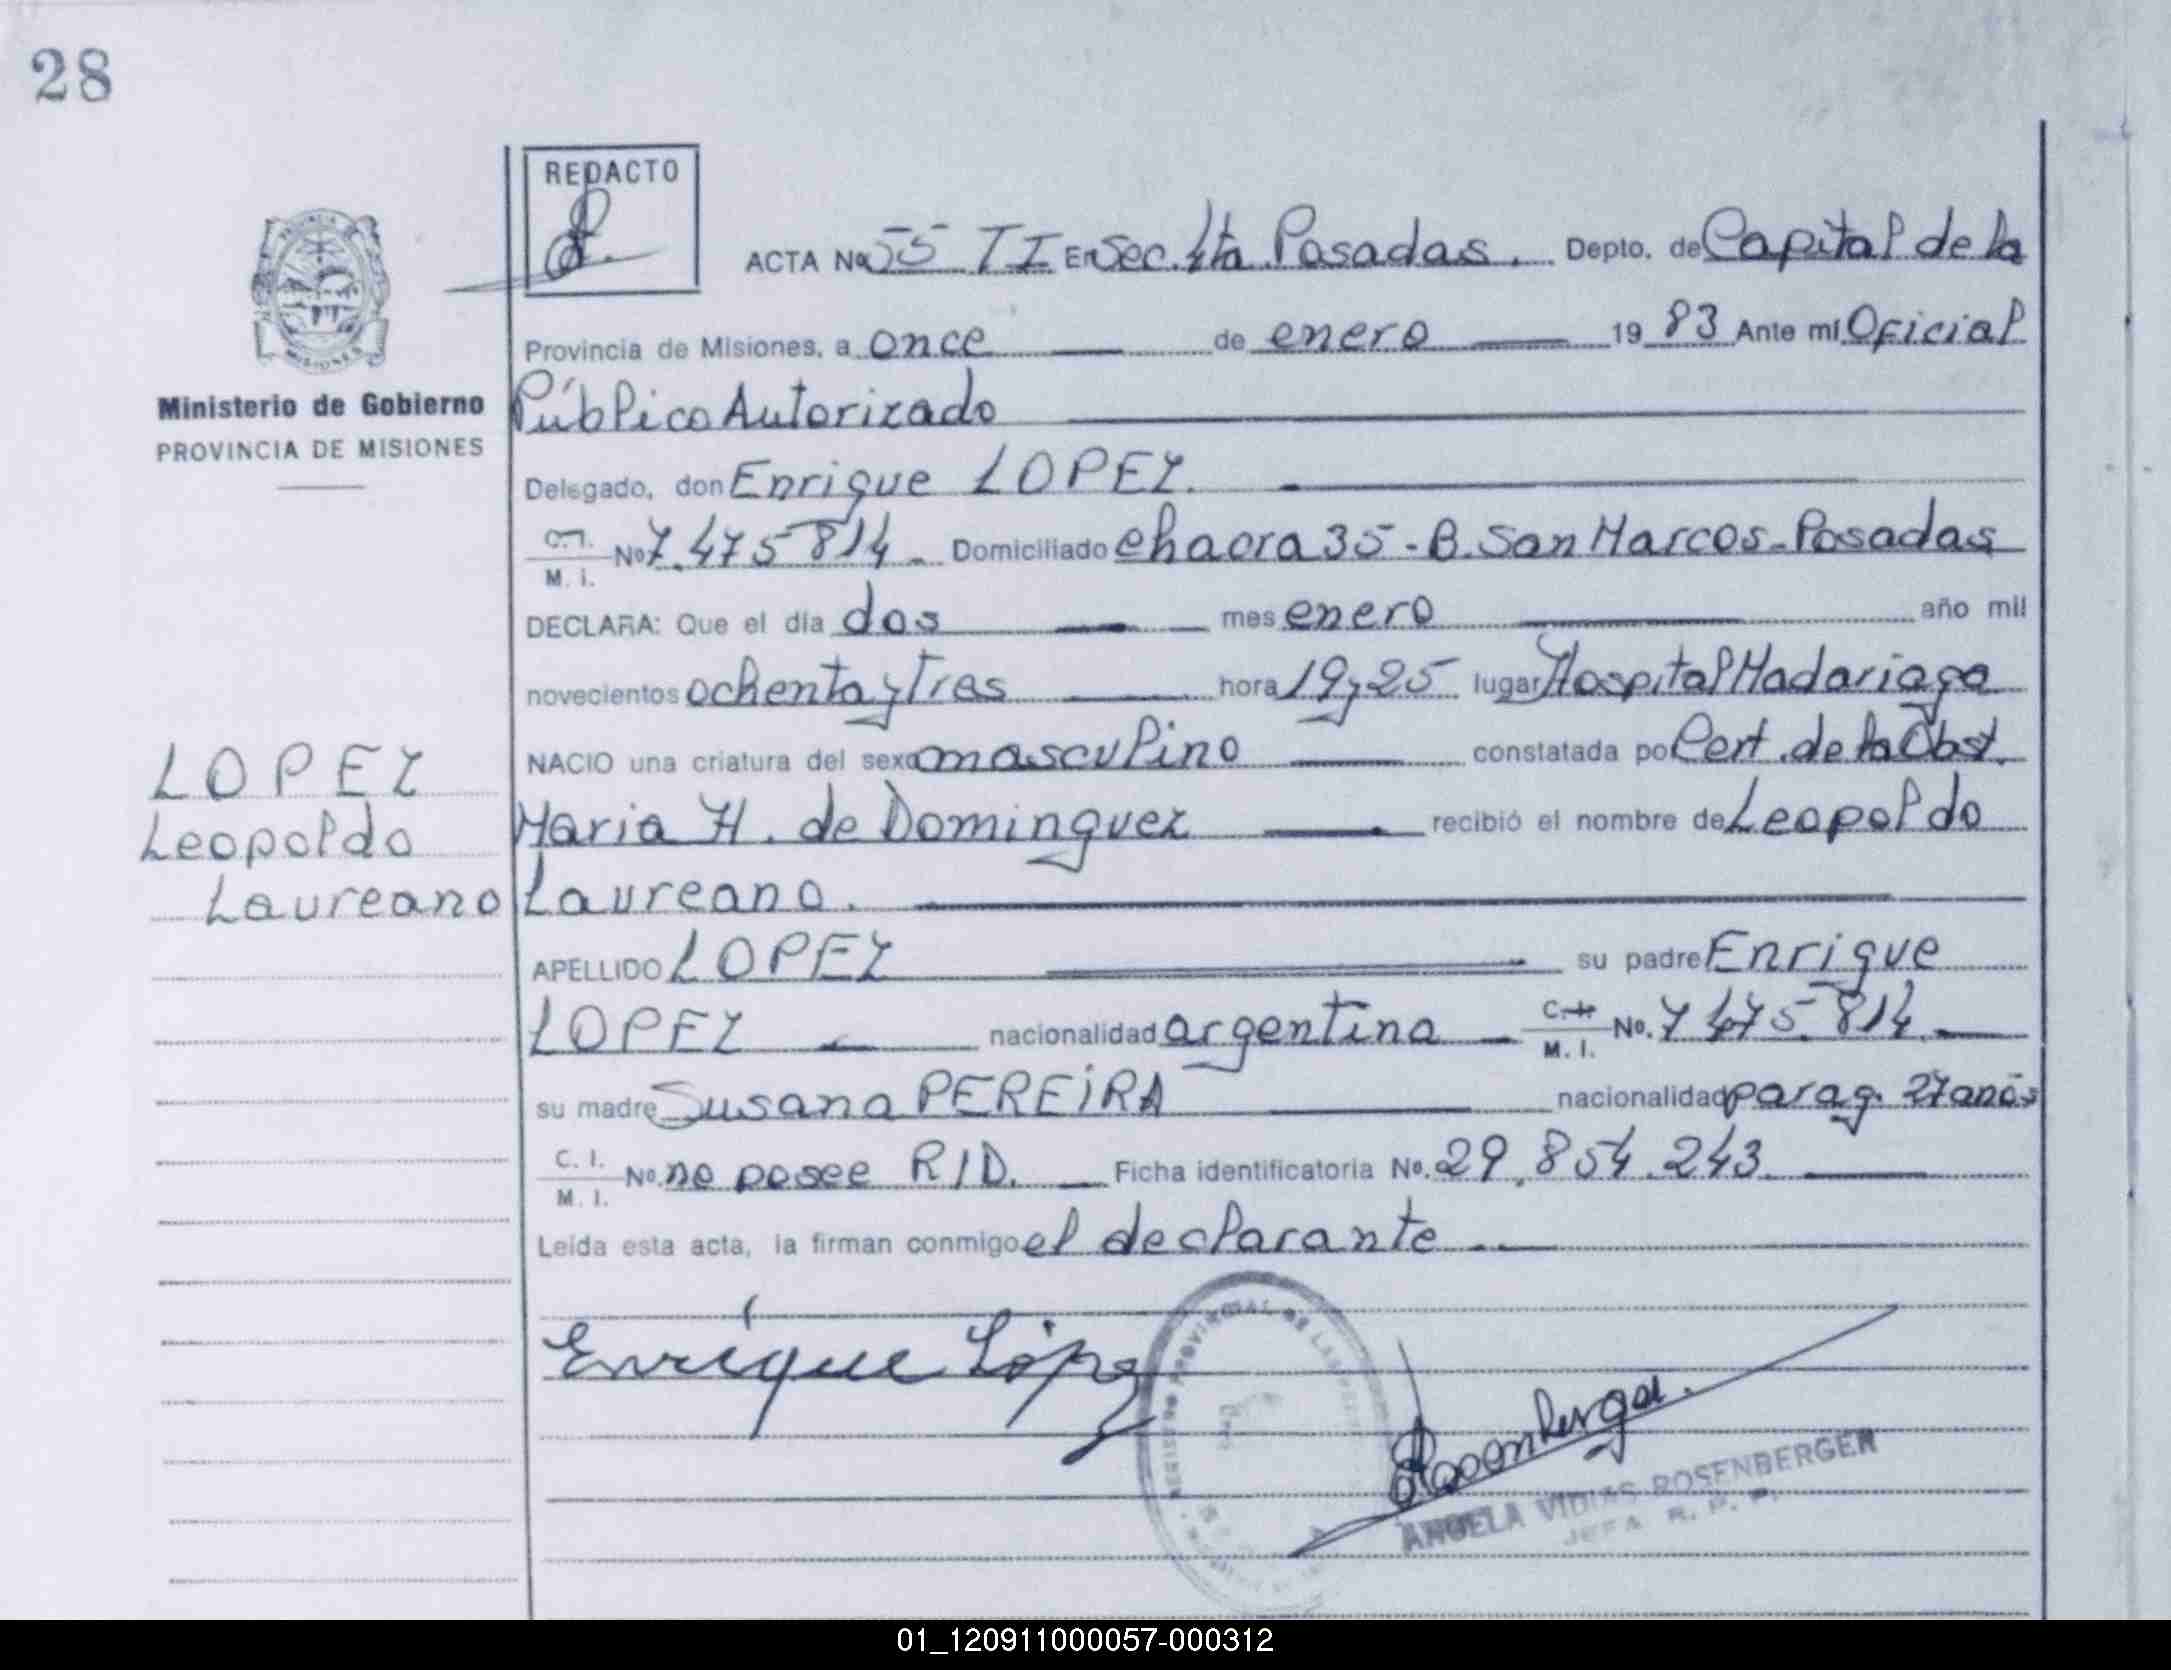 28
REDACTO
ACTA No 55 TI En Sec. 4ta. Posadas. Depto. de Capital de la
Provincia de Misiones, a once de enero 19 83 Ante mí Oficial
Público Autorizado
Ministerio de Gobierno
PROVINCIA DE MISIONES
Delegado, don Enrique LOPEZ.
C.I. M. I. No 7.475 814 Domiciliado chacra 35 - B. San Marcos - Posadas
DECLARA: Que el día dos mes enero año mil
novecientos ochenta y tres hora 19 y 25 lugar Hospital Madariaga
NACIO una criatura del sexo masculino constatada po Cert. de la Obst.
Maria H. de Dominguez recibió el nombre de Leopoldo
Laureano.
LOPEZ
Leopoldo
Laureano
APELLIDO LOPEZ su padre Enrique
LOPEZ nacionalidad argentina C. I. M. I. No. 7 475 814
su madre Susana PEREIRA nacionalidad parag. 27 años
C. I. M. I. No. no posee R/D. Ficha identificatoria No. 29.854.243
Leída esta acta, la firman conmigo el declarante
Enrique López
Rosenberger
ANGELA VIDIAS ROSENBERGER
JEFA R. P. P.
01_120911000057-000312